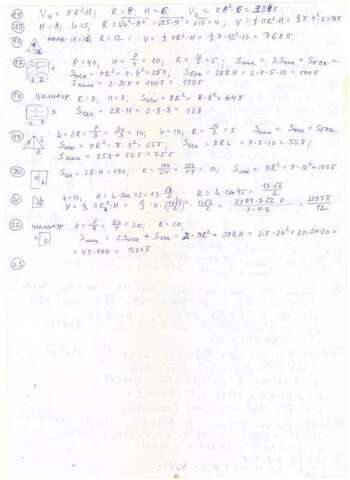 14 V₀ = πR²H; R = 8; H = 6; V₀ = π·8²·6 = 384π
15 H = 3; L = 5; R = √(L²-H²) = √(25-9) = √16 = 4; V = ⅓πR²H = ⅓π·4²·3 =
16 H = 16; R = 12; V = ⅓πR²·H = ⅓π·12²·16 = 768π
17 P = 40; H = P/4 = 10; R = 10/2 = 5; Sполн = 2Sосн + Sбок
Sосн = πR² = π·5² = 25π; Sбок = 2πRH = 2·π·5·10 = 100π
Sполн = 2·25π + 100π = 150π
18 цилиндр R = 8; H = 8; Sосн = πR² = π·8² = 64π
Sсеч = 2R·H = 2·8·8 = 128
19 L = 2R = P/3 = 30/3 = 10; L = 10; R = 10/2 = 5 Sполн = Sосн + Sбок
Sосн = πR² = π·5² = 25π; Sбок = πRL = π·5·10 = 50π;
Sполн = 25π + 50π = 75π
20 Sсеч = 2R·H =
Sосн = πR² = π·10² = 100π
21 L = 13; H = L·cos45 = 13·√2/2; R = L·cos45 = 13·√2/2
V = ⅓πR²·H = = 2197π√2/12
22 цилиндр H = P/4 = 20; R = 20
Sполн = 2Sосн + Sбок = 2·πR² + 2πRH = 2π·20² + 2π·20·20 =
= 4π·400 = 1600π
23